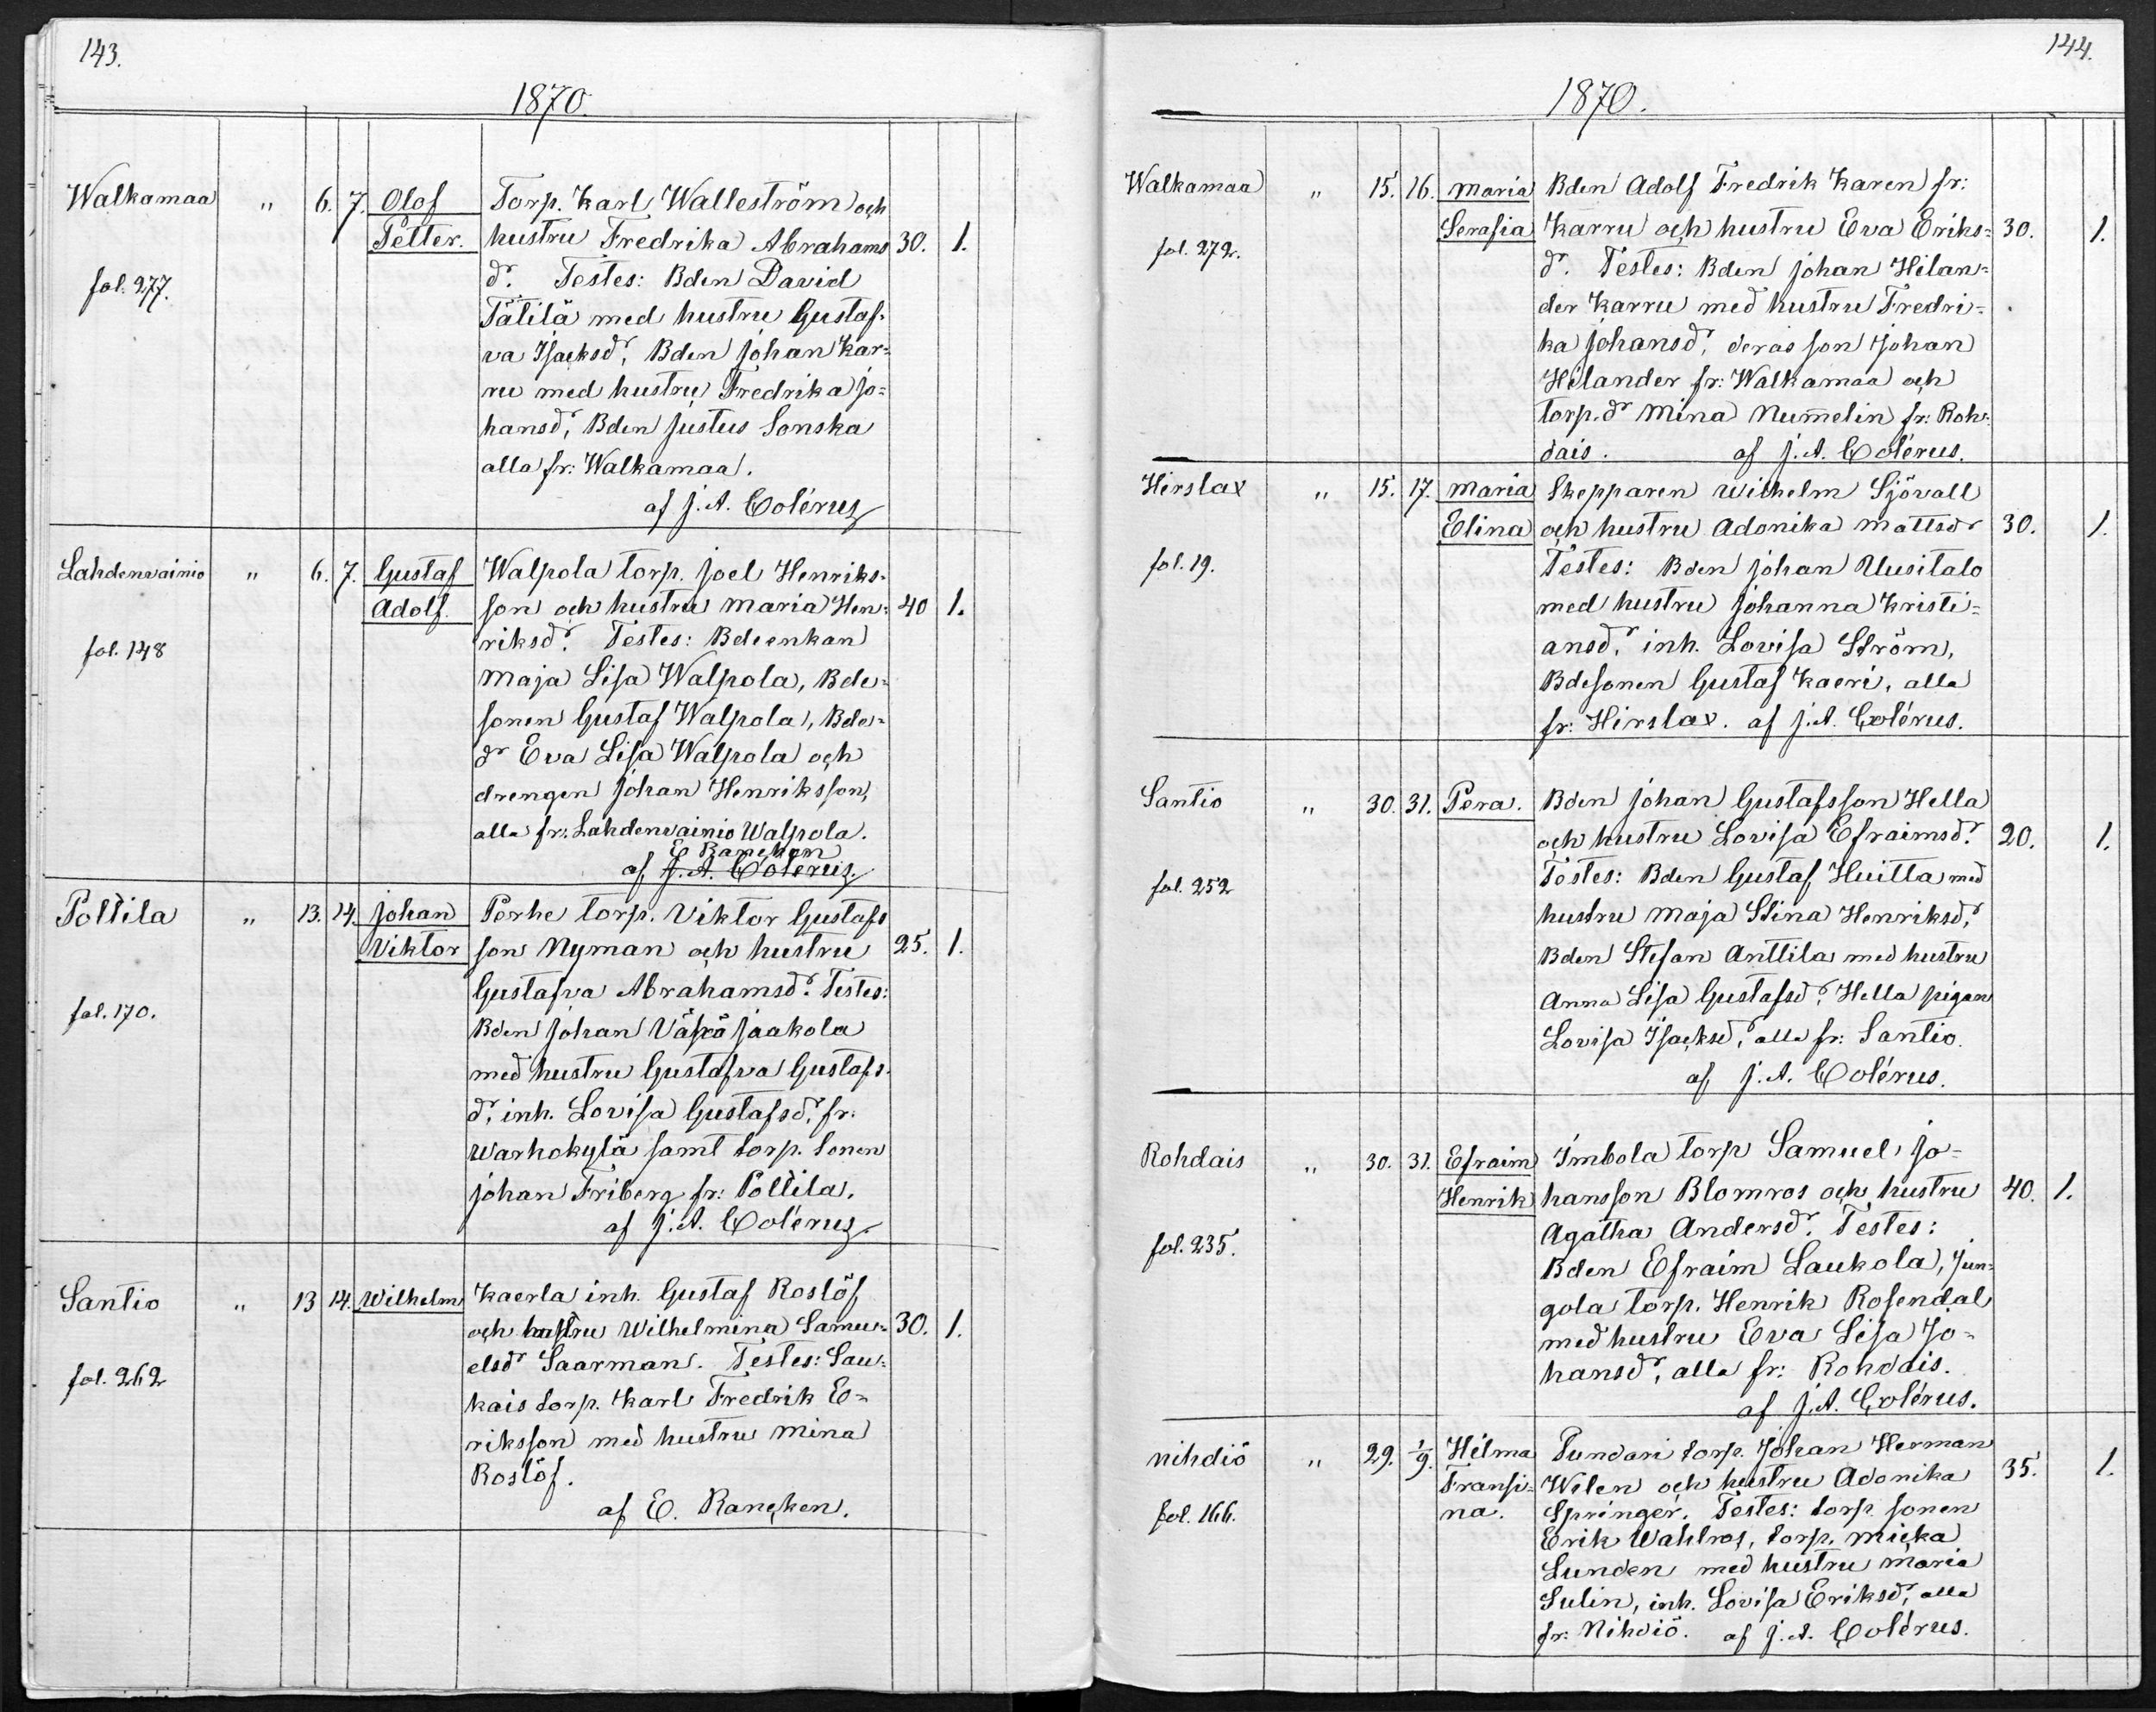 143.
1870.
Walkamaa " 6. 7. Olof Torp. Karl Walleström och
Petter. hustru Fredrika Abrahams 30. 1.
fol. 277. dr. Testes: Bden David
Tätilä med hustru Gustaf-
va Isacksdr, Bden Johan Kar-
ru med hustru Fredrika Jo-
hansdr, Bden Justus Sonska
alla fr: Walkamaa.
af J. A. Colérus
Lahdenvainio " 6. 7. Gustaf Walpola torp. Joel Henriks-
Adolf. son och hustru Maria Hen- 40 1.
fol. 148 riksdr. Testes: Bdeenkan
Maja Lisa Walpola, Bde-
sonen Gustaf Walpola, Bde-
dr Eva Lisa Walpola och
drengen Johan Henriksson,
alla fr: Lahdenvainio Walpola.
E Rancken
af J. A. Colérus
Poltila " 13. 14. Johan Perhe torp. Viktor Gustafs
Viktor son Nyman och hustru 25. 1.
Gustafva Abrahamsdr. Testes:
fol. 170. Bden Johan Vähä Jaakola
med hustru Gustafva Gustafs-
dr, inh. Lovisa Gustafsdr, fr:
Warhokylä samt torp. sonen
Johan Friberg fr: Poltila.
af J. A. Colérus
Santio " 13 14. Wilhelm Kaerla inh. Gustaf Roslöf
och hustru Wilhelmina Samu- 30. 1.
fol. 262 elsdr Saarman. Testes: Sau-
kais torp. Karl Fredrik E-
riksson med hustru Mina
Roslöf.
af E. Rancken.
144.
1870.
Walkamaa " 15. 16. Maria Bden Adolf Fredrik Karen fr:
Serafia Karru och hustru Eva Eriks- 30. 1.
fol. 272. dr. Testes: Bden Johan Hilan-
der Karru med hustru Fredri-
ka Johansdr, deras son Johan
Hilander fr: Walkamaa och
torp. dr Mina Numelin fr: Roh-
dais. af J. A. Colérus.
Hirslax " 15. 17. Maria Skepparen Wilhelm Sjövall
Elina och hustru Adonika Mattsdr 30. 1.
fol. 19. Testes: Bden Johan Uusitalo
med hustru Johanna Kristi-
ansdr, inh. Lovisa Ström,
Bdesonen Gustaf Kaeri, alla
fr: Hirslax. af J. A. Colérus.
Santio " 30. 31. Pera. Bden Johan Gustafsson Hella
och hustru Lovisa Efraimsdr. 20. 1.
fol. 252 Testes: Bden Gustaf Huitta med
hustru Maja Stina Henriksdr,
Bden Stefan Anttila med hustru
Anna Lisa Gustafsdr, Hella pigan
Lovisa Isacksdr, alla fr: Santio.
af J. A. Colérus.
Rohdais " 30. 31. Efraim Imbola torp Samuel Jo-
Henrik hansson Blomros och hustru 40. 1.
fol. 235. Agatha Andersdr. Testes:
Bden Efraim Laukola, Jun-
gola torp. Henrik Rosendal
med hustru Eva Lisa Jo-
hansdr, alla fr: Rohdais.
af J. A. Colérus.
Nihdiö " 29. 1/9. Hilma Pundari torp. Johan Herman
Fransi- Wilen och hustru Adonika 35. 1.
fol. 166. na. Springer. Testes: torp. sonen
Erik Wahlros, torp. Micka
Lunden med hustru Maria
Sulin, inh. Lovisa Eriksdr, alla
fr: Nihdiö. af J. A. Colérus.